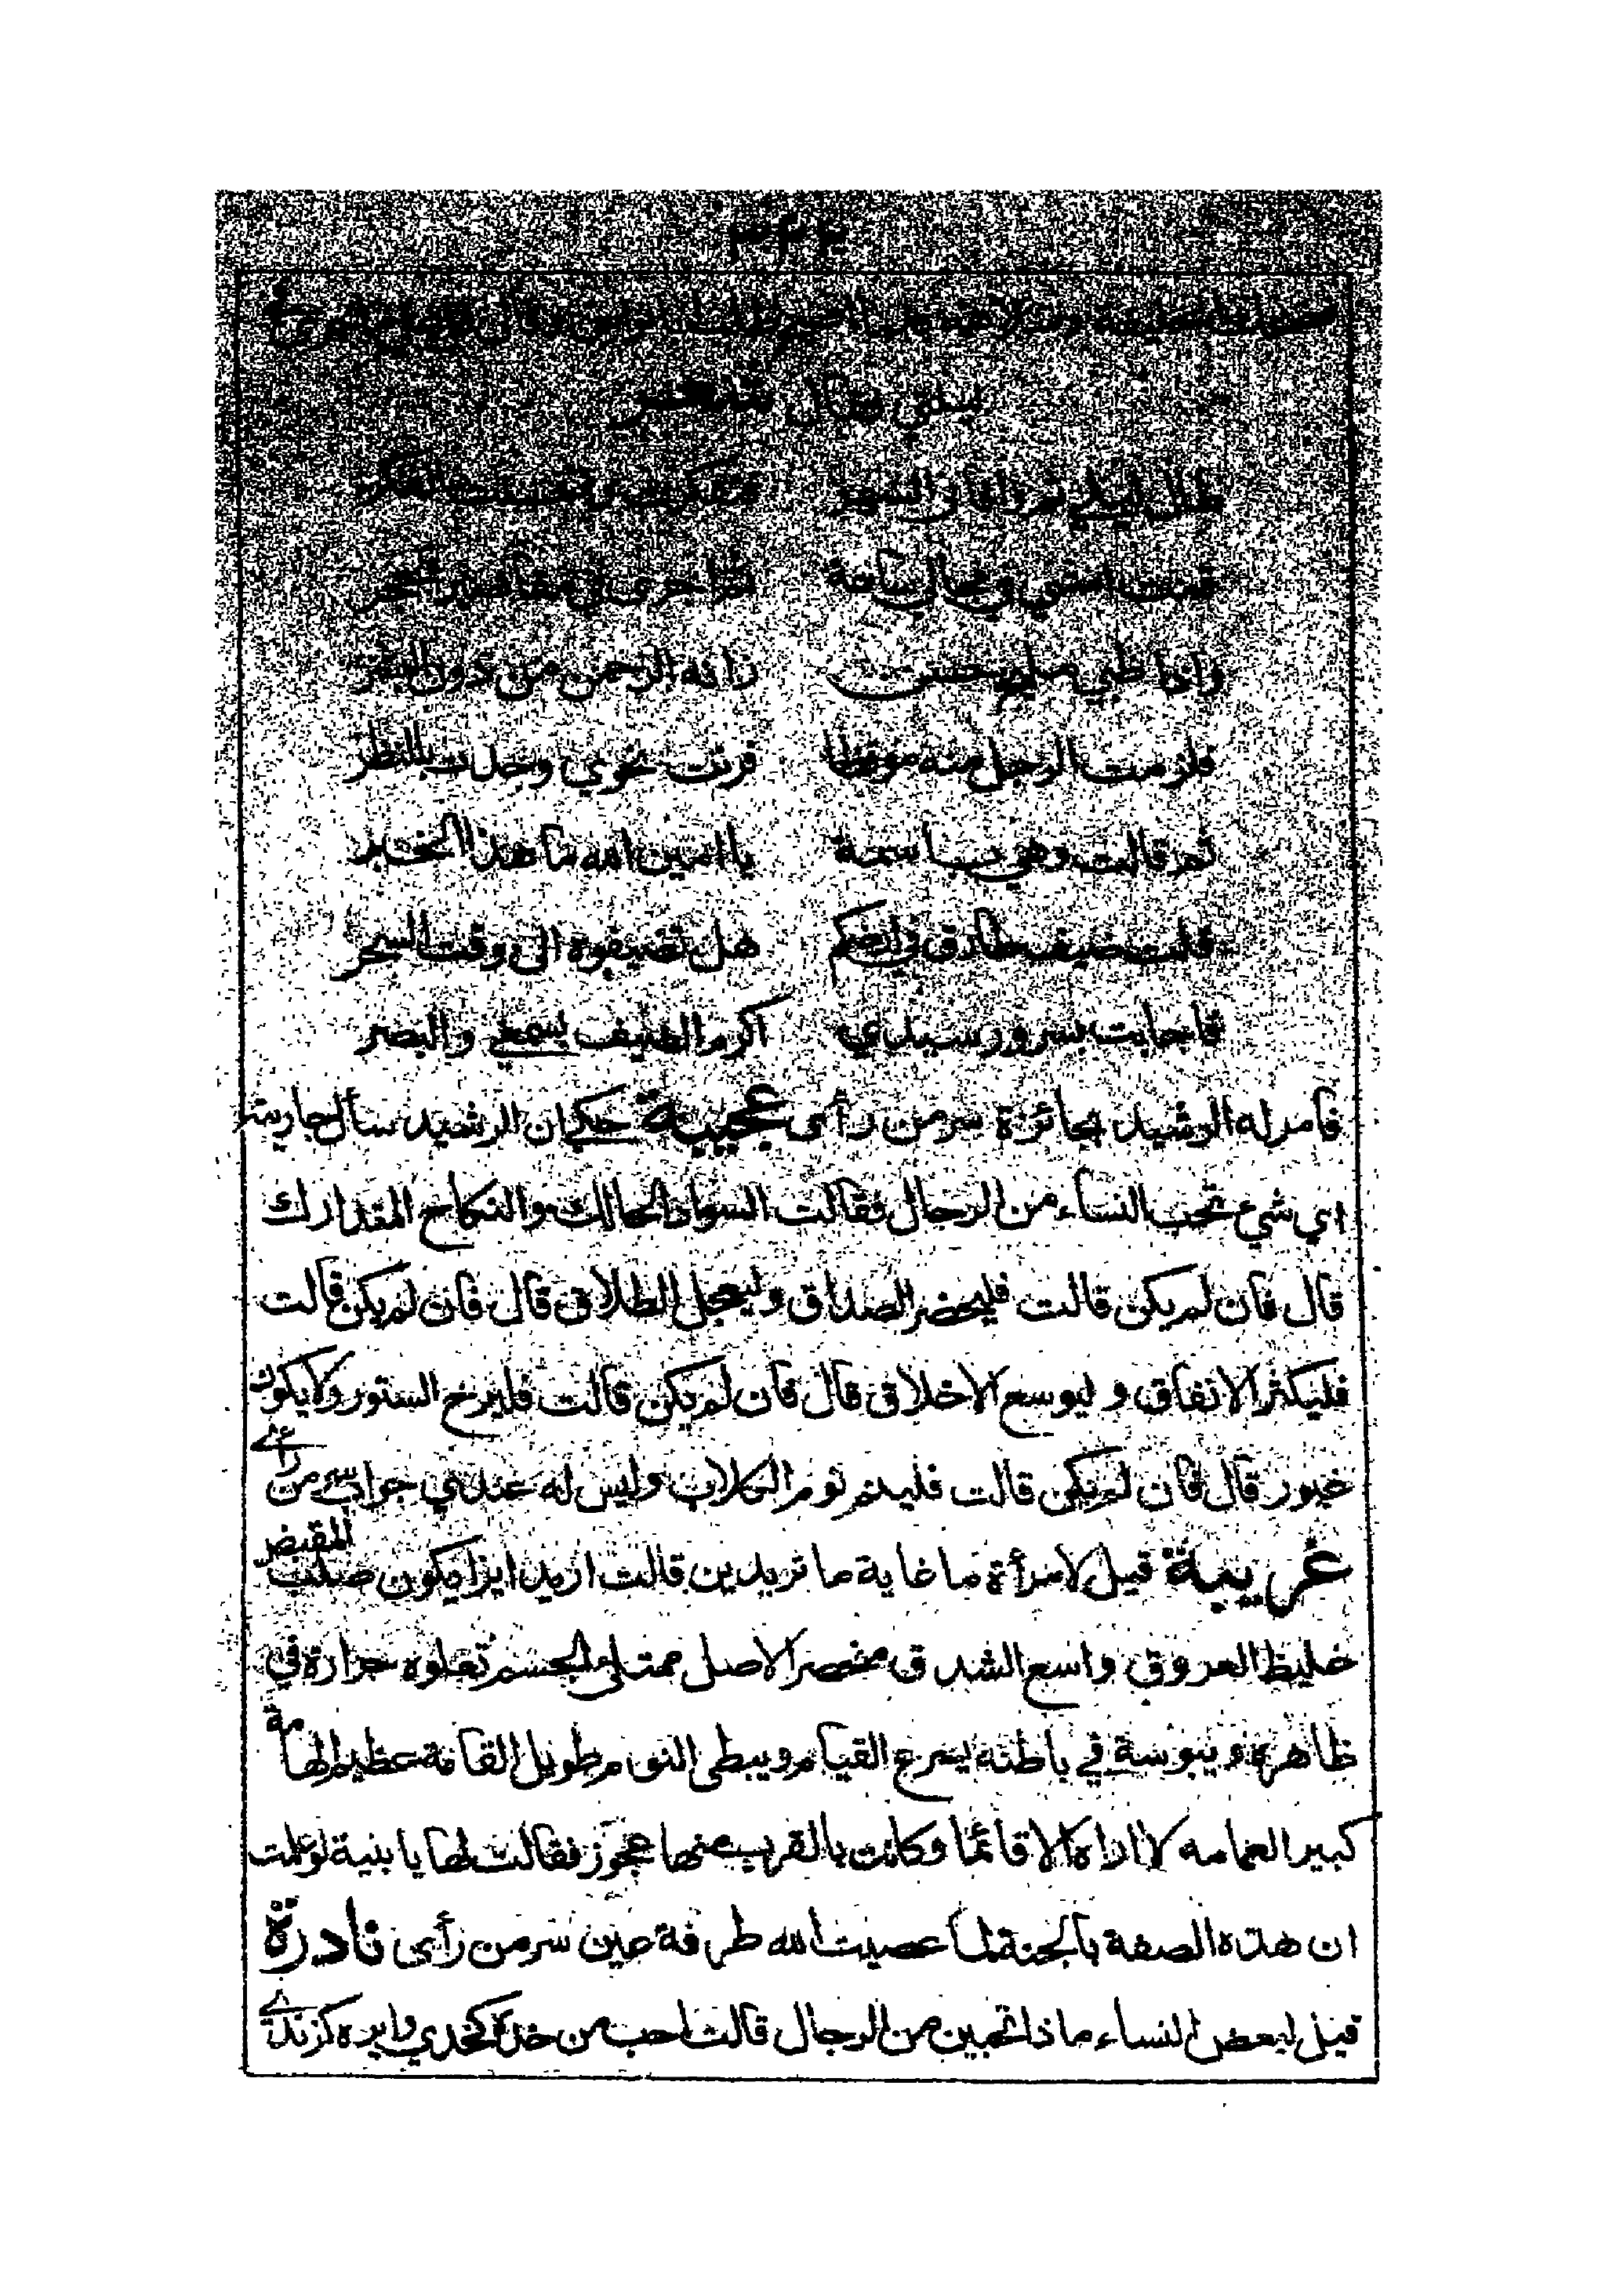 ٣٢٢
بيتي فقال شعر
طال ليلي ثم وافاني السهر فتفكرت وقد حسنت الفكر
قمت امشي في مجالي ساعة ثم اجرى في مقاصير الحجر
واذا ظبي مليح حسن زانه الرحمن من دون البشر
فلزمت الرجل منه موقظا فرنت نحوي وجدت بالنظر
ثم قالت وهي باسمة يا امين الله ما هذا الخبر
قلت ضيف طارق في ارضكم هل تضيفوه الى وقت السحر
فاجابت بسرور سيدي اكرم الضيف بسمعي والبصر
فامر له الرشيد بجائزة سر من رأى عجيبة حكي ان الرشيد سأل جاريته
اي شيء تحب النساء من الرجال فقالت السواد الحالك والنكاح المتدارك
قال فان لم يكن قالت فليحضر الصداق وليعجل الطلاق قال فان لم يكن قالت
فليكثر الانفاق و ليوسع الاخلاق قال فان لم يكن قالت فليرخ الستور ولا يكون
غيور قال فان لم يكن قالت فلينم نوم الكلاب وليس له عندي جواب سر من رأى
غريبة قيل لامرأة ما غاية ما تريدين قالت اريد ايرا يكون صلب المقبض
غليظ العروق واسع الشدق مخصر الاصل ممتلئ الجسم تعلوه حرارة في
ظاهره و يبوسة في باطنه يسرع القيام ويبطي النوم طويل القامة عظيم الهامة
كبير العمامه لا اراه الا قائما وكانت بالقرب منها عجوز فقالت لها يا بنية لو علمت
ان هذه الصفة بالجنة لما عصيت الله طرفة عين سر من رأى نادرة
قيل لبعض النساء ماذا تحبين من الرجال قالت احب من خده كخدي وايره كزندي